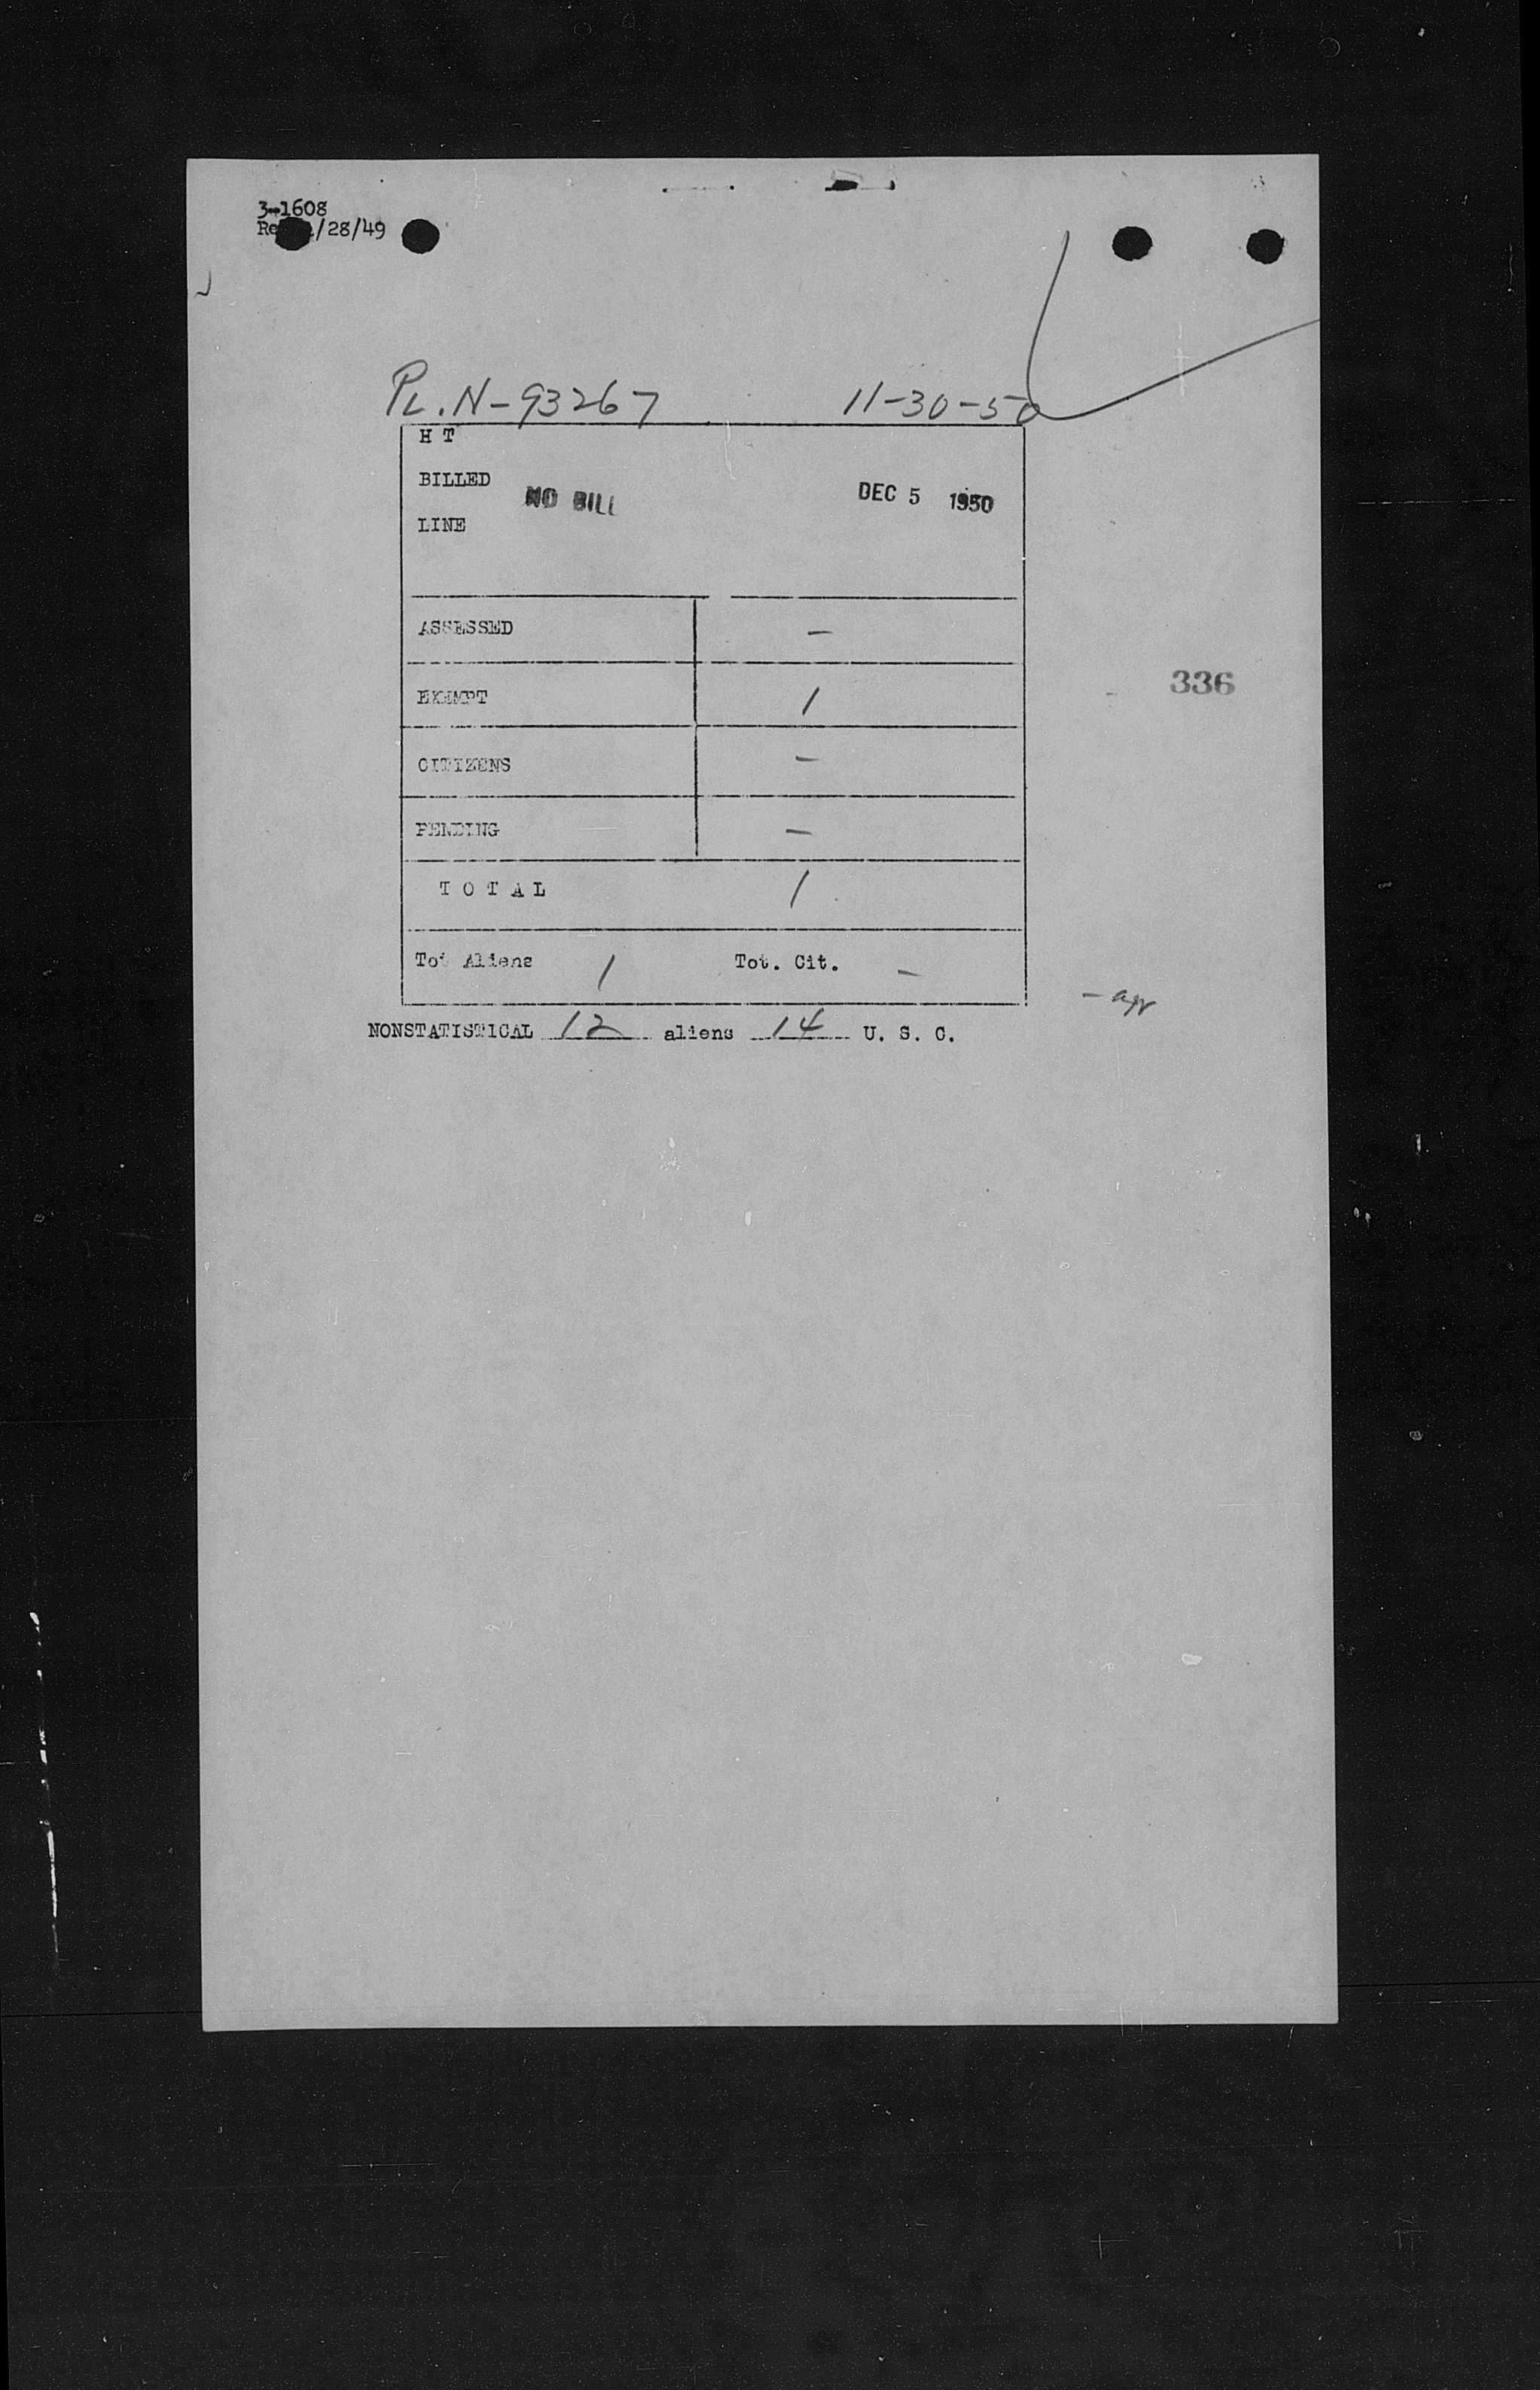 3-1608
/28/49
PL. N-93267 11-30-50
H T
BILLED
NO BILL DEC 5 1950
LINE
ASSESSED —
336
EXEMPT 1
CITIZENS —
PENDING —
T O T A L 1
Tot Aliens 1 Tot. Cit. —
NONSTATISTICAL 12 aliens 14 U. S. C.